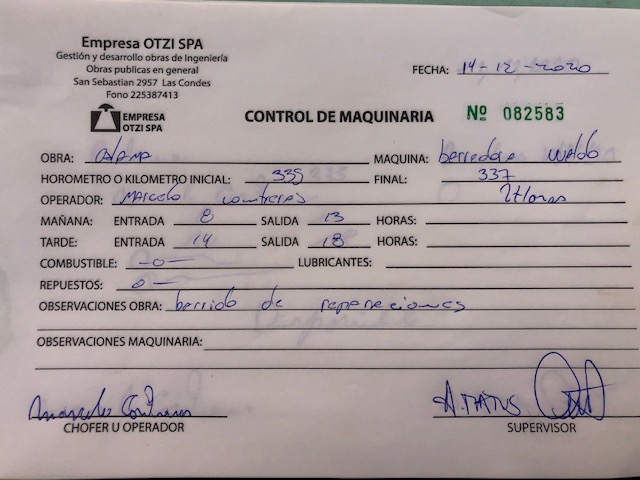 Empresa OTZI SPA
Gestión y desarrollo obras de Ingeniería
Obras publicas en general
San Sebastian 2957 Las Condes
Fono 225387413
FECHA: 14-12-2020
EMPRESA
OTZI SPA
CONTROL DE MAQUINARIA Nº 082583
OBRA: MAQUINA:
HOROMETRO O KILOMETRO INICIAL: 335 FINAL: 337
OPERADOR:
MAÑANA: ENTRADA 8 SALIDA 13 HORAS:
TARDE: ENTRADA 14 SALIDA 18 HORAS:
COMBUSTIBLE: -0- LUBRICANTES:
REPUESTOS: 0-
OBSERVACIONES OBRA: barrido de reparaciones
OBSERVACIONES MAQUINARIA:
CHOFER U OPERADOR SUPERVISOR